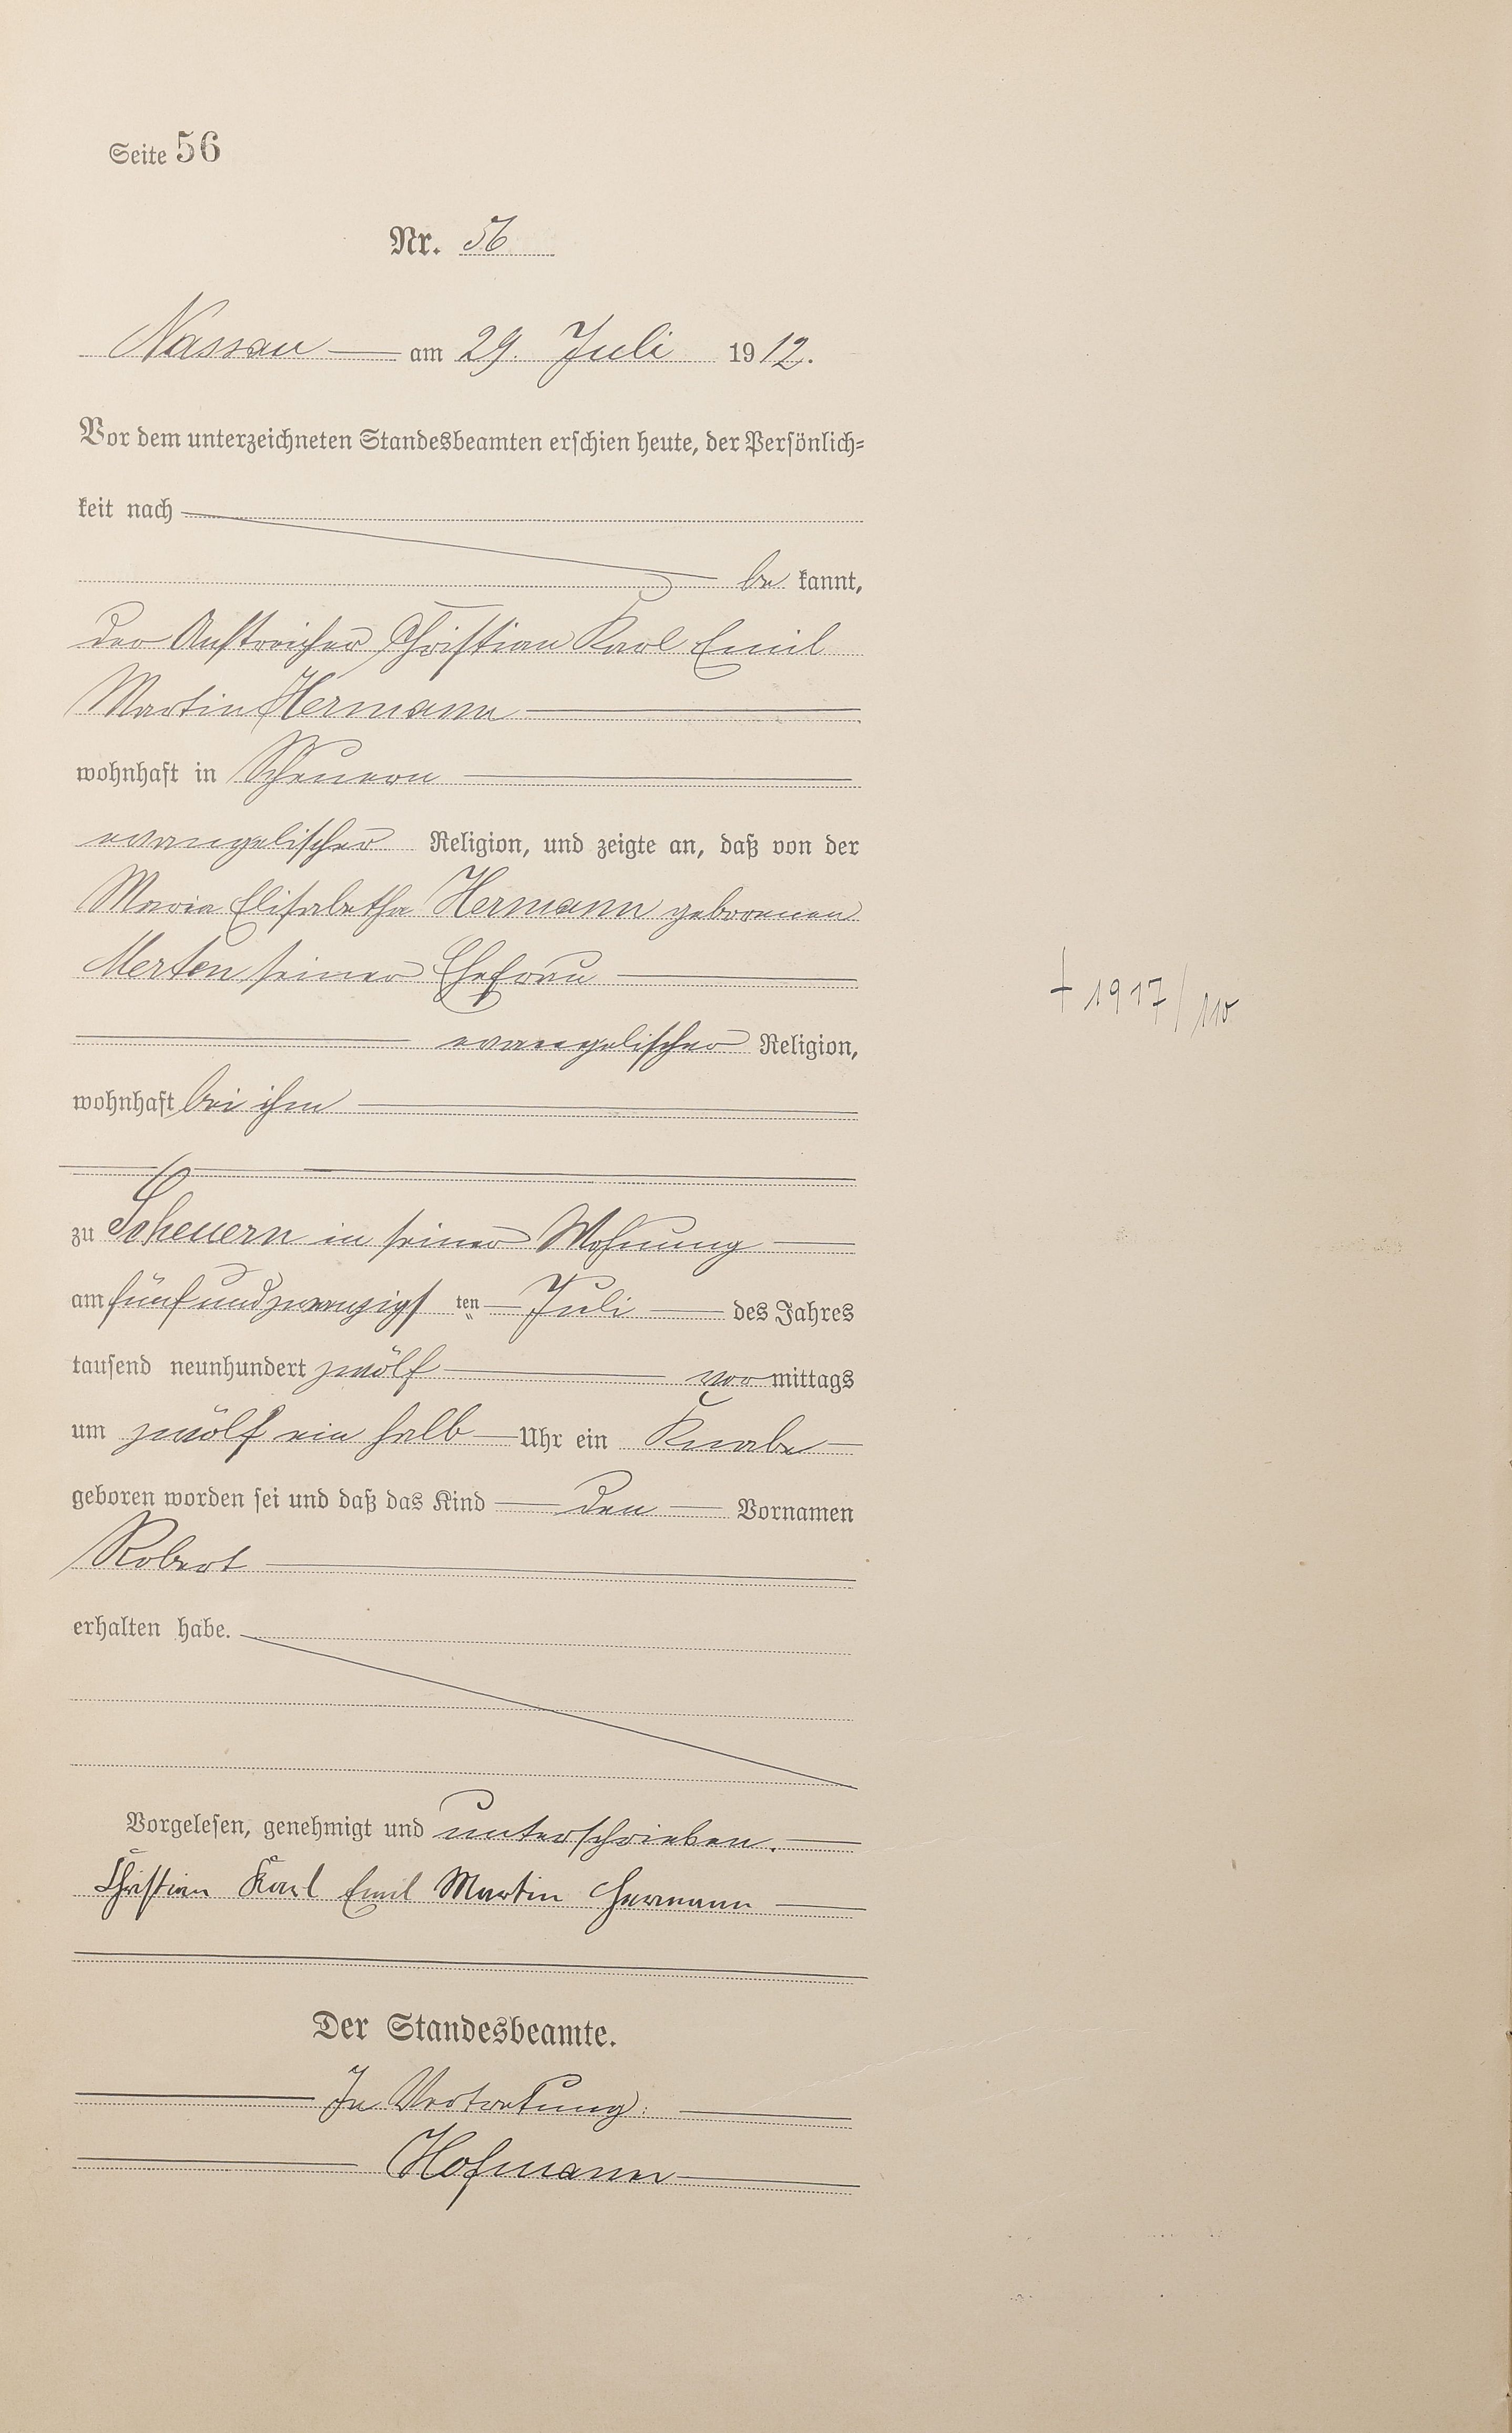 Seite 56
Nr. 56
Nassau am 29. Juli 1912.
Vor dem unterzeichneten Standesbeamten erschien heute, der Persönlich-
keit nach
be kannt,
der Anstreicher Christian Karl Emil
Martin Hermann
wohnhaft in Scheuern
evangelischer Religion, und zeigte an, daß von der
Maria Elisabetha Hermann geborenen
Merten seiner Ehefrau
evangelischer Religion,
wohnhaft bei ihm
zu Scheuern in seiner Wohnung
am fünfundzwanzigsten ten Juli des Jahres
tausend neunhundert zwölf vor mittags
um zwölf ein halb Uhr ein Knabe
geboren worden sei und daß das Kind den Vornamen
Robert
erhalten habe.
† 1917/110
Vorgelesen, genehmigt und unterschrieben.
Christian Karl Emil Martin Hermann
Der Standesbeamte.
In Vertretung:
Hofmann